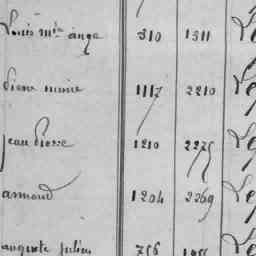 Louis Mie ange 310 1311 Le
pierre marie 1117 2210 Le
jean pierre 1210 2275 Le
armand 1204 2269 Le
auguste julien 756 Le